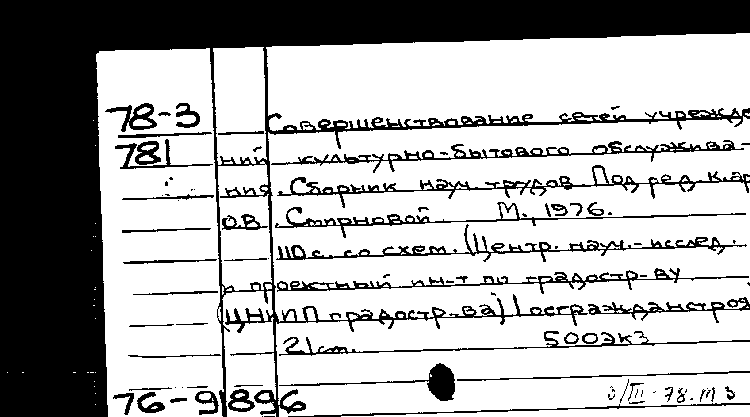 78-3 Совершенствование сетей учрежде
781 ний культурно-бытового обслужива-
ния. Сборник науч. трудов. Под ред. к.ар
О.В. Смирновой. М., 1976.
110 с. со схем. (Центр. науч.-исслед.
и проектный ин-т по градостр-ву
(ЦНИИП градостр-ва) Госгражданстроя
21 см. 500экз
76-91896 3/III-78.